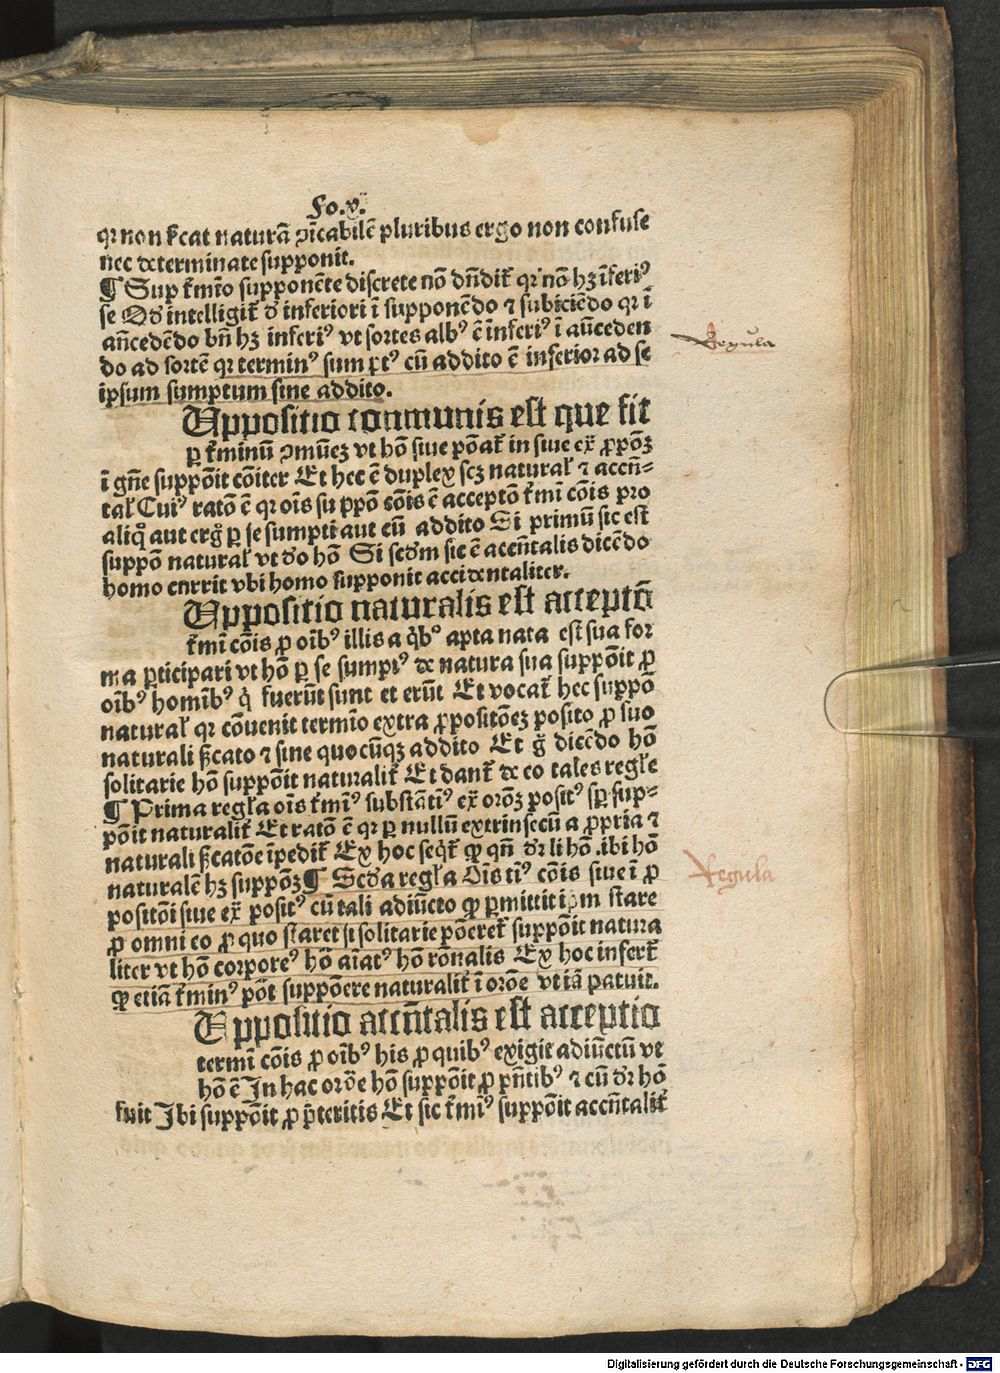 Fo.v.
qꝛ non ſc̄cat naturã ꝯīcabilē pluribus ergo non confuſe
nec determinate supponit.
¶ Sup t̄mīo supponēte discrete nō dn̄dit̄ qꝛ nō hꝫ īferiꝰ
se Qd̛ intelligit̄ d̛ inferiori ī supponēdo ⁊ subiciēdo qꝛ ī
an̄cedēdo bn̄ hꝫ inferiꝰ vt sortes albꝰ ē inferiꝰ ī an̄ceden
do ad sortē qꝛ terminꝰ sum ꝑtꝰ cū addito ē inferior ad se
ipsum sumptum sine addito.
Uppositio communis est que fit
ꝑ t̄minū ꝯmūeꝫ vt hō siue pōat̄ in siue ex̄ ꝓpōꝫ
ī gn̄e suppōit cōiter Et hec ē duplex scꝫ natural̄ ⁊ accn̄-
tal̄ Cuiꝰ ratō ē qꝛ oīs suppō cōis ē acceptō t̄mī cōis pro
aliq̊ aut ergꝰ ꝑ se sumpti aut cū addito Si primū sic est
suppō natural̄ vt d̛o hō Si secd̛m sic ē accn̄talis dicēdo
homo currit vbi homo supponit accidentaliter.
Uppositio naturalis est acceptō
t̄mī cōis ꝓ oībꝰ illis a q̄bꝰ apta nata est sua for
ma ꝑticipari vt hō ꝑ se sumptꝰ de natura sua suppōit ꝓ
oībꝰ homībꝰ q̄ fuerūt sunt et erūt Et vocat̄ hec suppō
natural̄ qꝛ cōuenit termīo extra ꝓpositōeꝫ posito ꝓ suo
naturali sc̄cato ⁊ sine quocūqꝫ addito Et g̊ dicēdo hō
solitarie hō suppōit naturalit̄ Et dant̄ de eo tales regl̄e
¶ Prima regl̄a oīs t̄mīꝰ substātīꝰ ex̄ orōꝫ positꝰ sꝑ sup-
pōit naturalit̄ Et ratō ē qꝛ ꝑ nullū extrinsecū a ꝓpria ⁊
naturali sc̄catōe īpedit̄ Ex hoc seq̄t̄ ꝙ qn̄ dr̄ li hō .ibi hō
naturalē hꝫ suppōꝫ ¶ Secd̛a regl̄a Oīs tīꝰ cōis siue ī ꝓ
positōi siue ex̄ positꝰ cū tali adiūcto ꝙ ꝑmittit ipm stare
ꝓ omni eo ꝓ quo staret si solitarie pōeret̄ suppōit natura
liter vt hō corporeꝰ hō aīatꝰ hō rōnalis Ex hoc infert̄
ꝙ etiã t̄minꝰ pōt suppōere naturalit̄ ī orōe vt iã patuit.
Uppositio accn̄talis est acceptio
termī cōis ꝓ oībꝰ his ꝓ quibꝰ exigit adiūctū vt
hō ē In hac orōe hō suppōit ꝓ pn̄tibꝰ ⁊ cū dr̄ hō
fuit Ibi suppōit ꝓ p̄teritis Et sic t̄mīꝰ suppōit accn̄talit̄
Regula
Regula
Digitalisierung gefördert durch die Deutsche Forschungsgemeinschaft - DFG